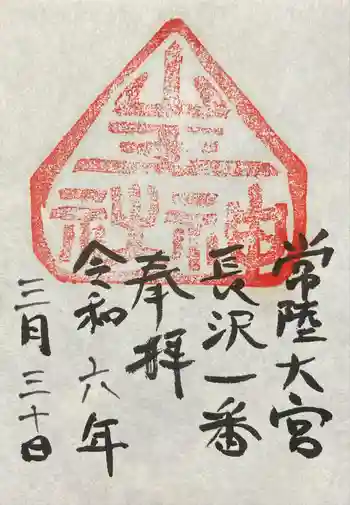 常陸大宮
長沢一番
奉拝
令和六年
三月三十日